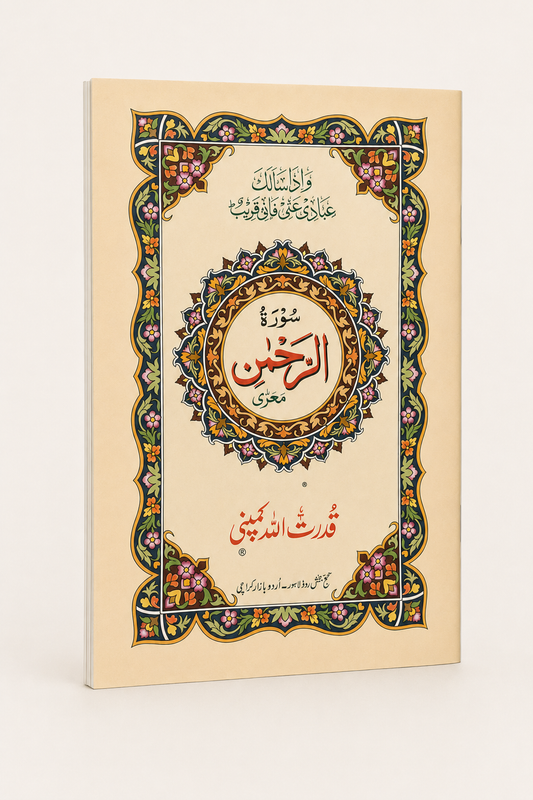 وَاِذَا سَاَلَكَ
عِبَادِیْ عَنِّیْ فَاِنِّیْ قَرِیْبٌ ؕ
سُوْرَةُ
الرَّحْمٰنِ
مَعَرّٰی
®
قُدرت اللہ کمپنی
®
روڈ لاہور۔ اُردو بازار کراچی